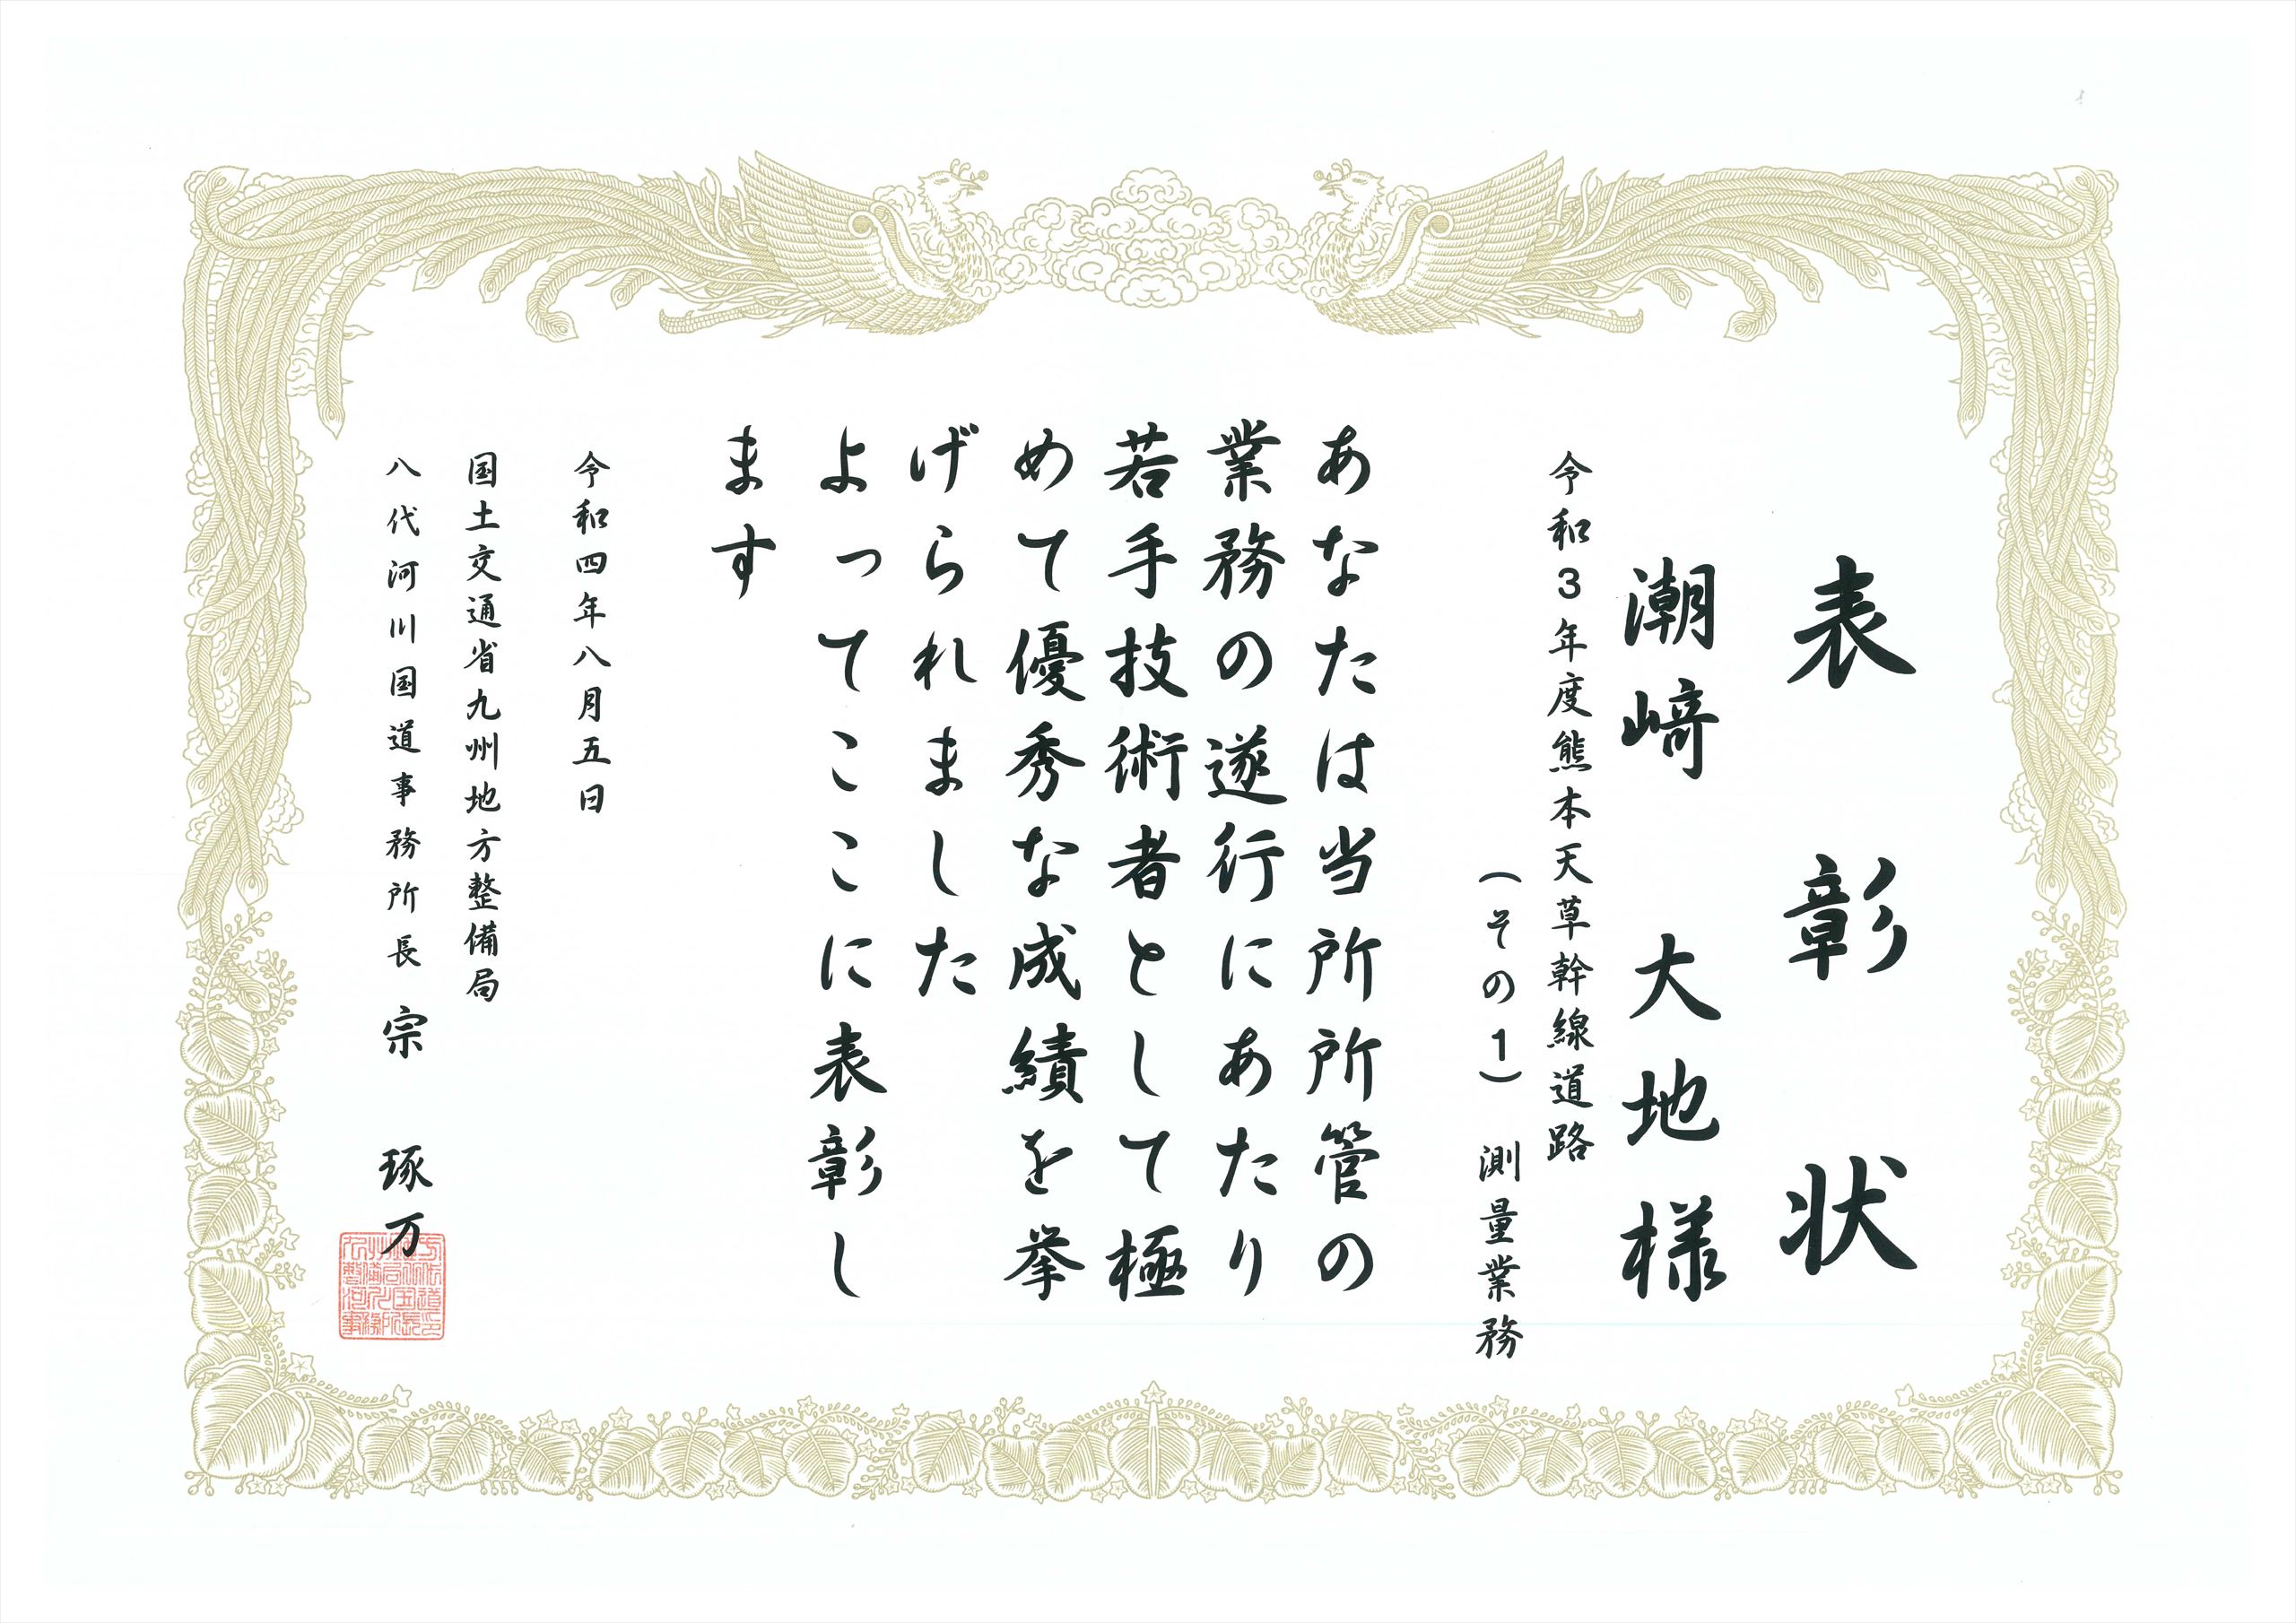 表彰状
潮﨑 大地様
令和3年度熊本天草幹線道路
(その1) 測量業務
あなたは当所所管の
業務の遂行にあたり
若手技術者として極
めて優秀な成績を挙
げられました
よってここに表彰し
ます
令和四年八月五日
国土交通省九州地方整備局
八代河川国道事務所長 宗 琢万